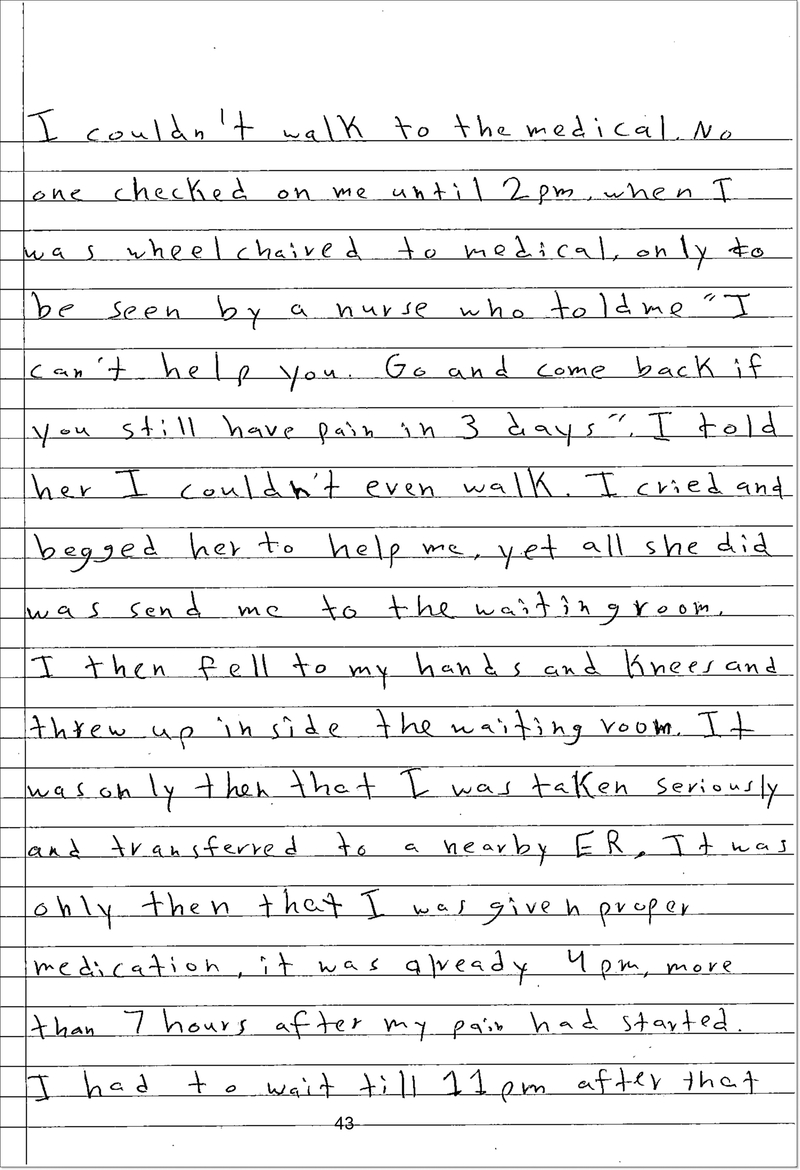 I couldn't walk to the medical. No
one checked on me until 2pm, when I
was wheelchaired to medical, only to
be seen by a nurse who told me "I
can't help you. Go and come back if
you still have pain in 3 days". I told
her I couldn't even walk. I cried and
begged her to help me, yet all she did
was send me to the waiting room.
I then fell to my hands and knees and
threw up inside the waiting room. It
was only then that I was taken seriously
and transferred to a nearby ER. It was
only then that I was given proper
medication, it was already 4pm, more
than 7 hours after my pain had started.
I had to wait till 11pm after that
43